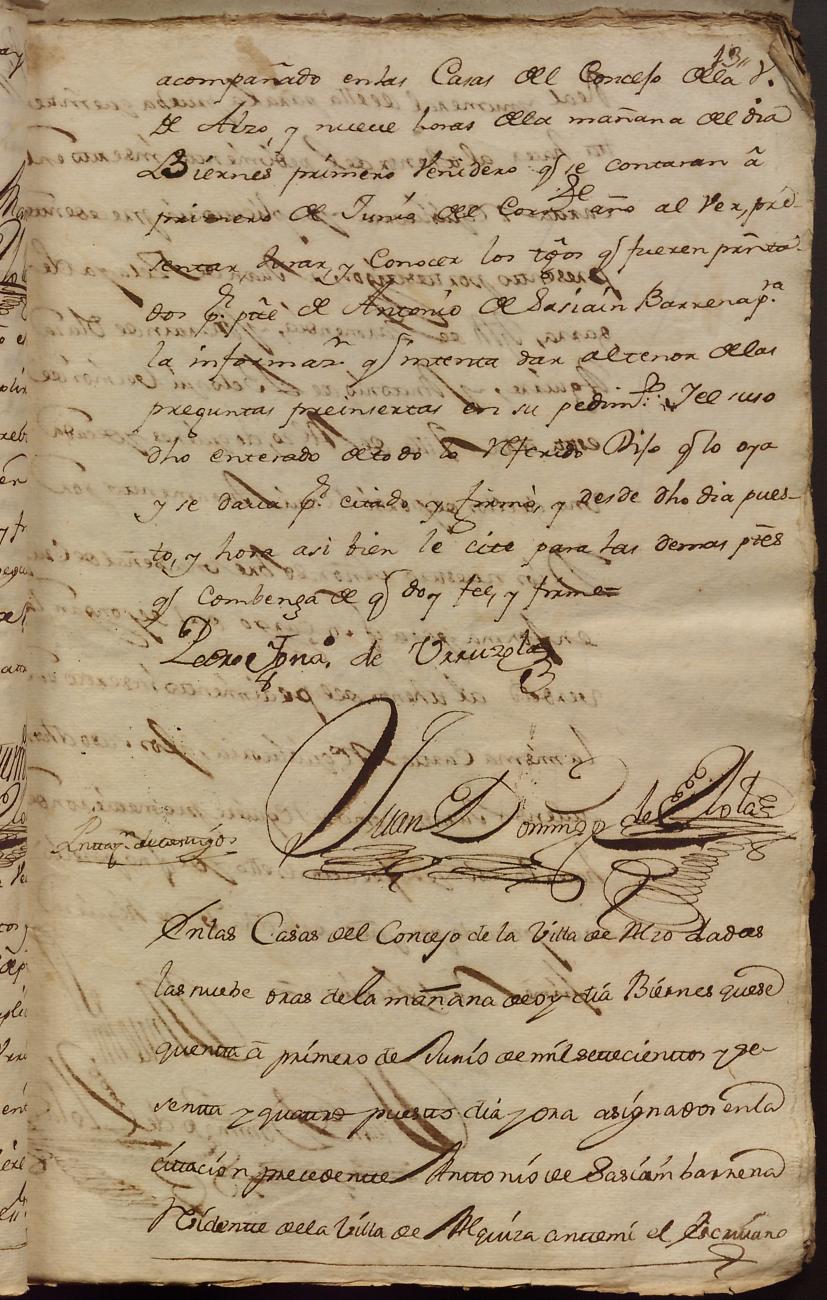 13
acompañado en las Casas del Concejo de la V.
de Alzo, y nueve horas de la mañana del dia
Biernes primero Venidero q se contaran â
primero de Junio del Corrte año al Ver, pre-
sentar Jurar, y Conocer los tgos q fueren presenta-
dos pr pte de Antonio de Sasiain Barrena pra
la informazn q intenta dar al tenor de las
preguntas preinsertas en su pedimto Y el suso
dho enterado de todo lo Referido Dijo q lo oya
y se daria pr citado y firmó, y desde dho dia pues-
to, y hora asi bien le cite para las demas ptes
q Combenga de q doy fee, y firme=
Pedro Ignao de Urruzola
Juan Domingo de
de testigos
En las Casas del Concejo de la Villa de Alzo dadas
las nuebe oras de la mañana de oy dia Biernes que se
quenta â primero de Junio de mil settecienttos y se-
sentta y quattro puestto dia y ora asignados en la
cittacion precedentte Anttonio de Sasiáin barrena
Residentte de la Villa de Alquiza antemi el Escrivano